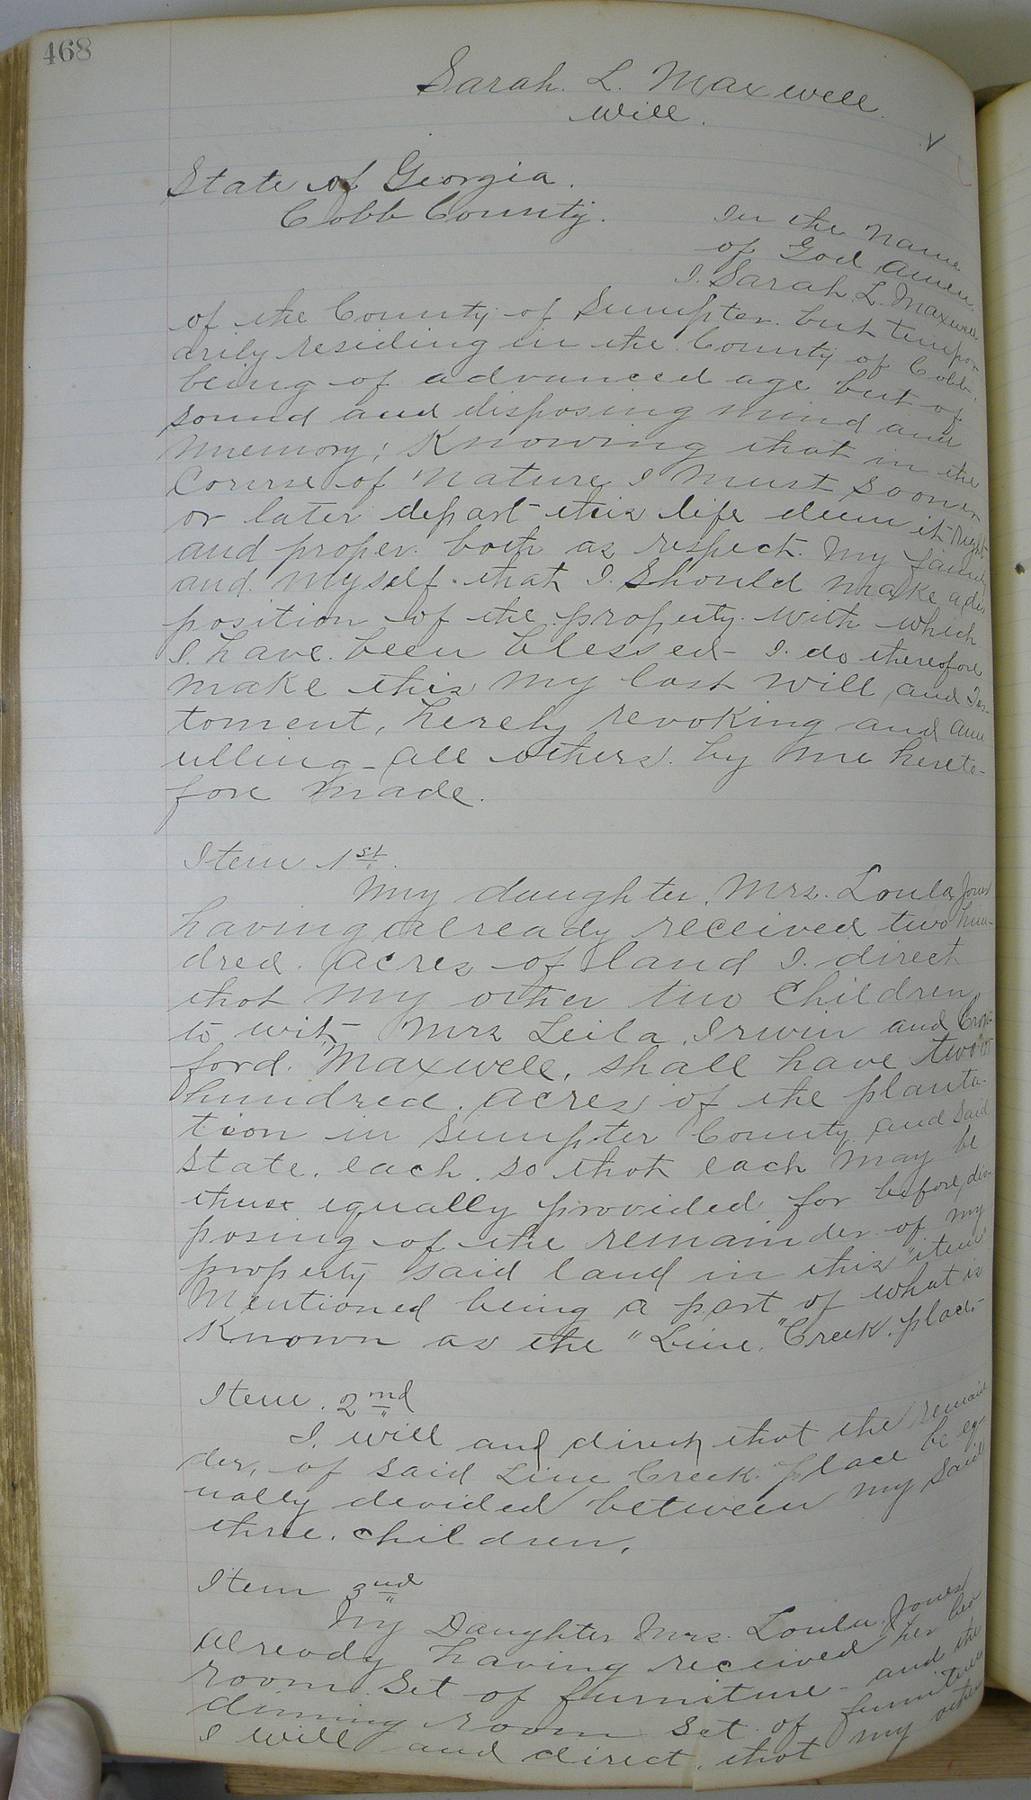 468
Sarah. L. Maxwell.
Will.
State of Georgia.
Cobb County.
In the Name
of God Amen.
I. Sarah. L. Maxwell
of the County of Sumpter. but tempor
arily residing in the County of Cobb.
being of advanced age but of
sound and disposing mind and
memory; Knowing that in the
Course of Nature I must sooner
or later depart this life deem it right
and proper. both as respect. My family
and Myself. that I. Should make a dis
position of the property. with which
I. have. been blessed - I. do therefore
make this my last Will and Tes-
toment, hereby revoking and ann
ulling - all others. by me hereto-
fore made.
Item 1st.
My daughter. Mrs. Loula Jones
having already received two hun-
dred. acres of land I. direct
that my other two Children,
to wit, Mrs Leila. Irwin and
ford. Maxwell, shall have two
hundred. acres of the planta-
tion in Sumpter County and said
State. each. so that each may be
thus equally provided for before dis
posing of the remainder of my
property said land in this "item"
Mentioned being a part of what is
Known as the "Line." Creek. place-
Item. 2nd
I. will and direct that the remain
der, of said Line Creek. place be eq
ually devided between my said
three. children.
Item 3nd
My Daughter Mrs. Loula. Jones
already having received her bed
room Set of furniture - and the
dinning room set of furniture
I will and direct, that my other